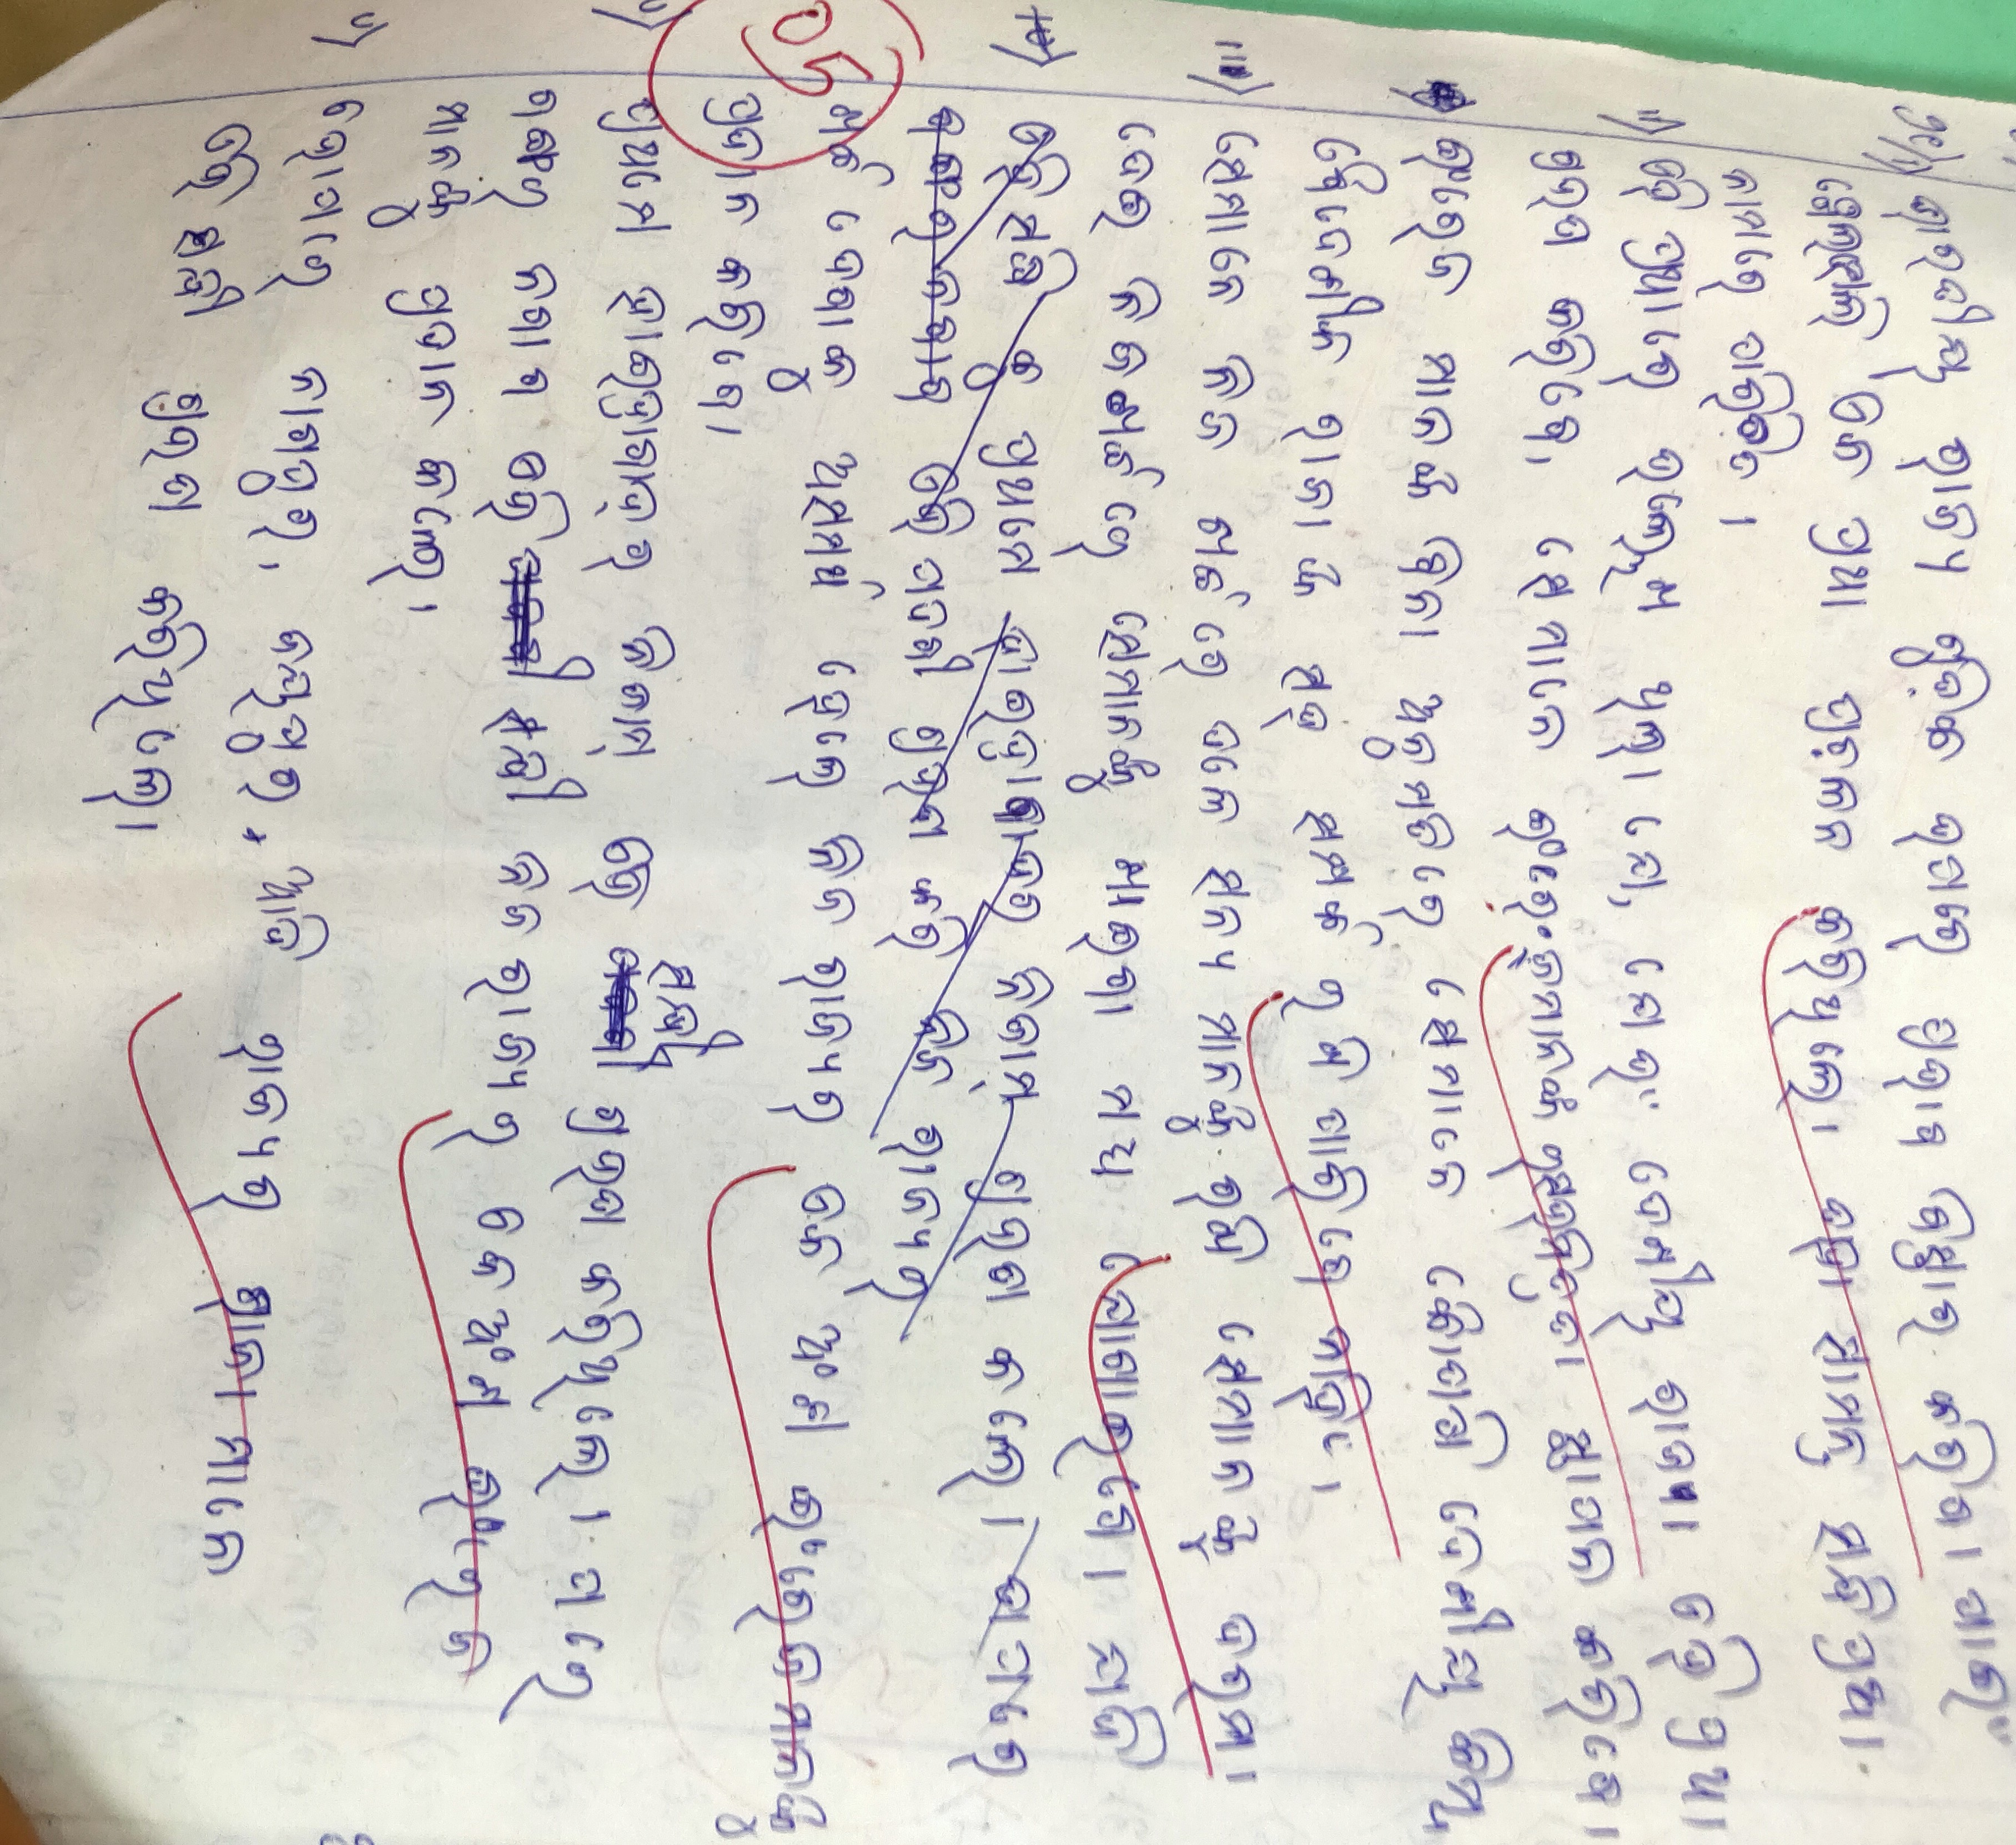 ଭାରତୀୟ ରାଜ୍ୟ ଗୁଡ଼ିକ ଉପରେ ପ୍ରଭାବ ବିସ୍ତାର କରିବା ପାଇଁ
ୱେଲେସଲି ଏକ ପ୍ରଥା ପ୍ରଚଳନ କରିଥିଲେ। ତାହା ସାମନ୍ତ ସନ୍ଧି ପ୍ରଥା
ନାମରେ ପରିଚିତ ।
ii) ଏହି ପ୍ରଥାରେ ଉଲ୍ଲେଖ ଥିଲା ଯେ, ଯେଉଁ ଦେଶୀୟ ରାଜା ଏହି ପ୍ରଥା
ଗ୍ରହଣ କରିବେ, ସେମାନେ ଇଂରେଜମାନଙ୍କ ସ୍ଥାପନ କରିବେ।
ଇଂରେଜ ମାନଙ୍କ ବିନା ଅନୁମତିରେ ସେମାନେ କୌଣସି ଦେଶୀୟ କିମ୍ବା
ବୈଦେଶୀକ ରାଜାଙ୍କ ସହ ସମ୍ପର୍କ ରଖି ପାରିବେ ନାହିଁ।
iii) ସେମାନେ ନିଜ ଖର୍ଚ୍ଚରେ ଦଳେ ସୈନ୍ୟ ମାନଙ୍କୁ ରଖି ସେମାନଙ୍କୁ ଦରମା
ଦେଇ ନିଜଖର୍ଚ୍ଚରେ ସେମାନଙ୍କୁ ଖାଇବା ମଧ୍ୟ ଯୋଗାଇବେ। ଯଦି
ଏହି ସନ୍ଧି କୁ ପ୍ରଥମେ ହାଇଦ୍ରାବାଦର ନିଜାମ୍ ଗ୍ରହଣ କଲେ।
ନବାବ ଏହି ପଦବୀ ଗ୍ରହଣ କରି ନିଜ ରାଜ୍ୟର
05 ଖର୍ଚ୍ଚ ଦେବାକୁ ଅସମର୍ଥ ହେଲେ ନିଜ ରାଜ୍ୟର ଏକ ଅଂଶ ଇଂରେଜମାନଙ୍କୁ
ପ୍ରଦାନ କରିବେ।
ସନ୍ଧୀ
ପ୍ରଥମେ ହାଇଦ୍ରାବାଦ୍‌ର ନିଜାମ୍ ଏହି ଗ୍ରହଣ କରିଥିଲେ। ପରେ
ନବାବ ଏହି ସନ୍ଧୀ ନିଜ ରାଜ୍ୟର ଏକ ଅଂଶ ଇଂରେଜ
ମାନଙ୍କୁ ପ୍ରଦାନ କଲେ।
v) ନାଗପୁର, ଜୟପୁର, ଆଦି ରାଜ୍ୟର ରାଜା ମାନେ
ଏହି ସନ୍ଧୀ ଗ୍ରହଣ କରିଥିଲେ।